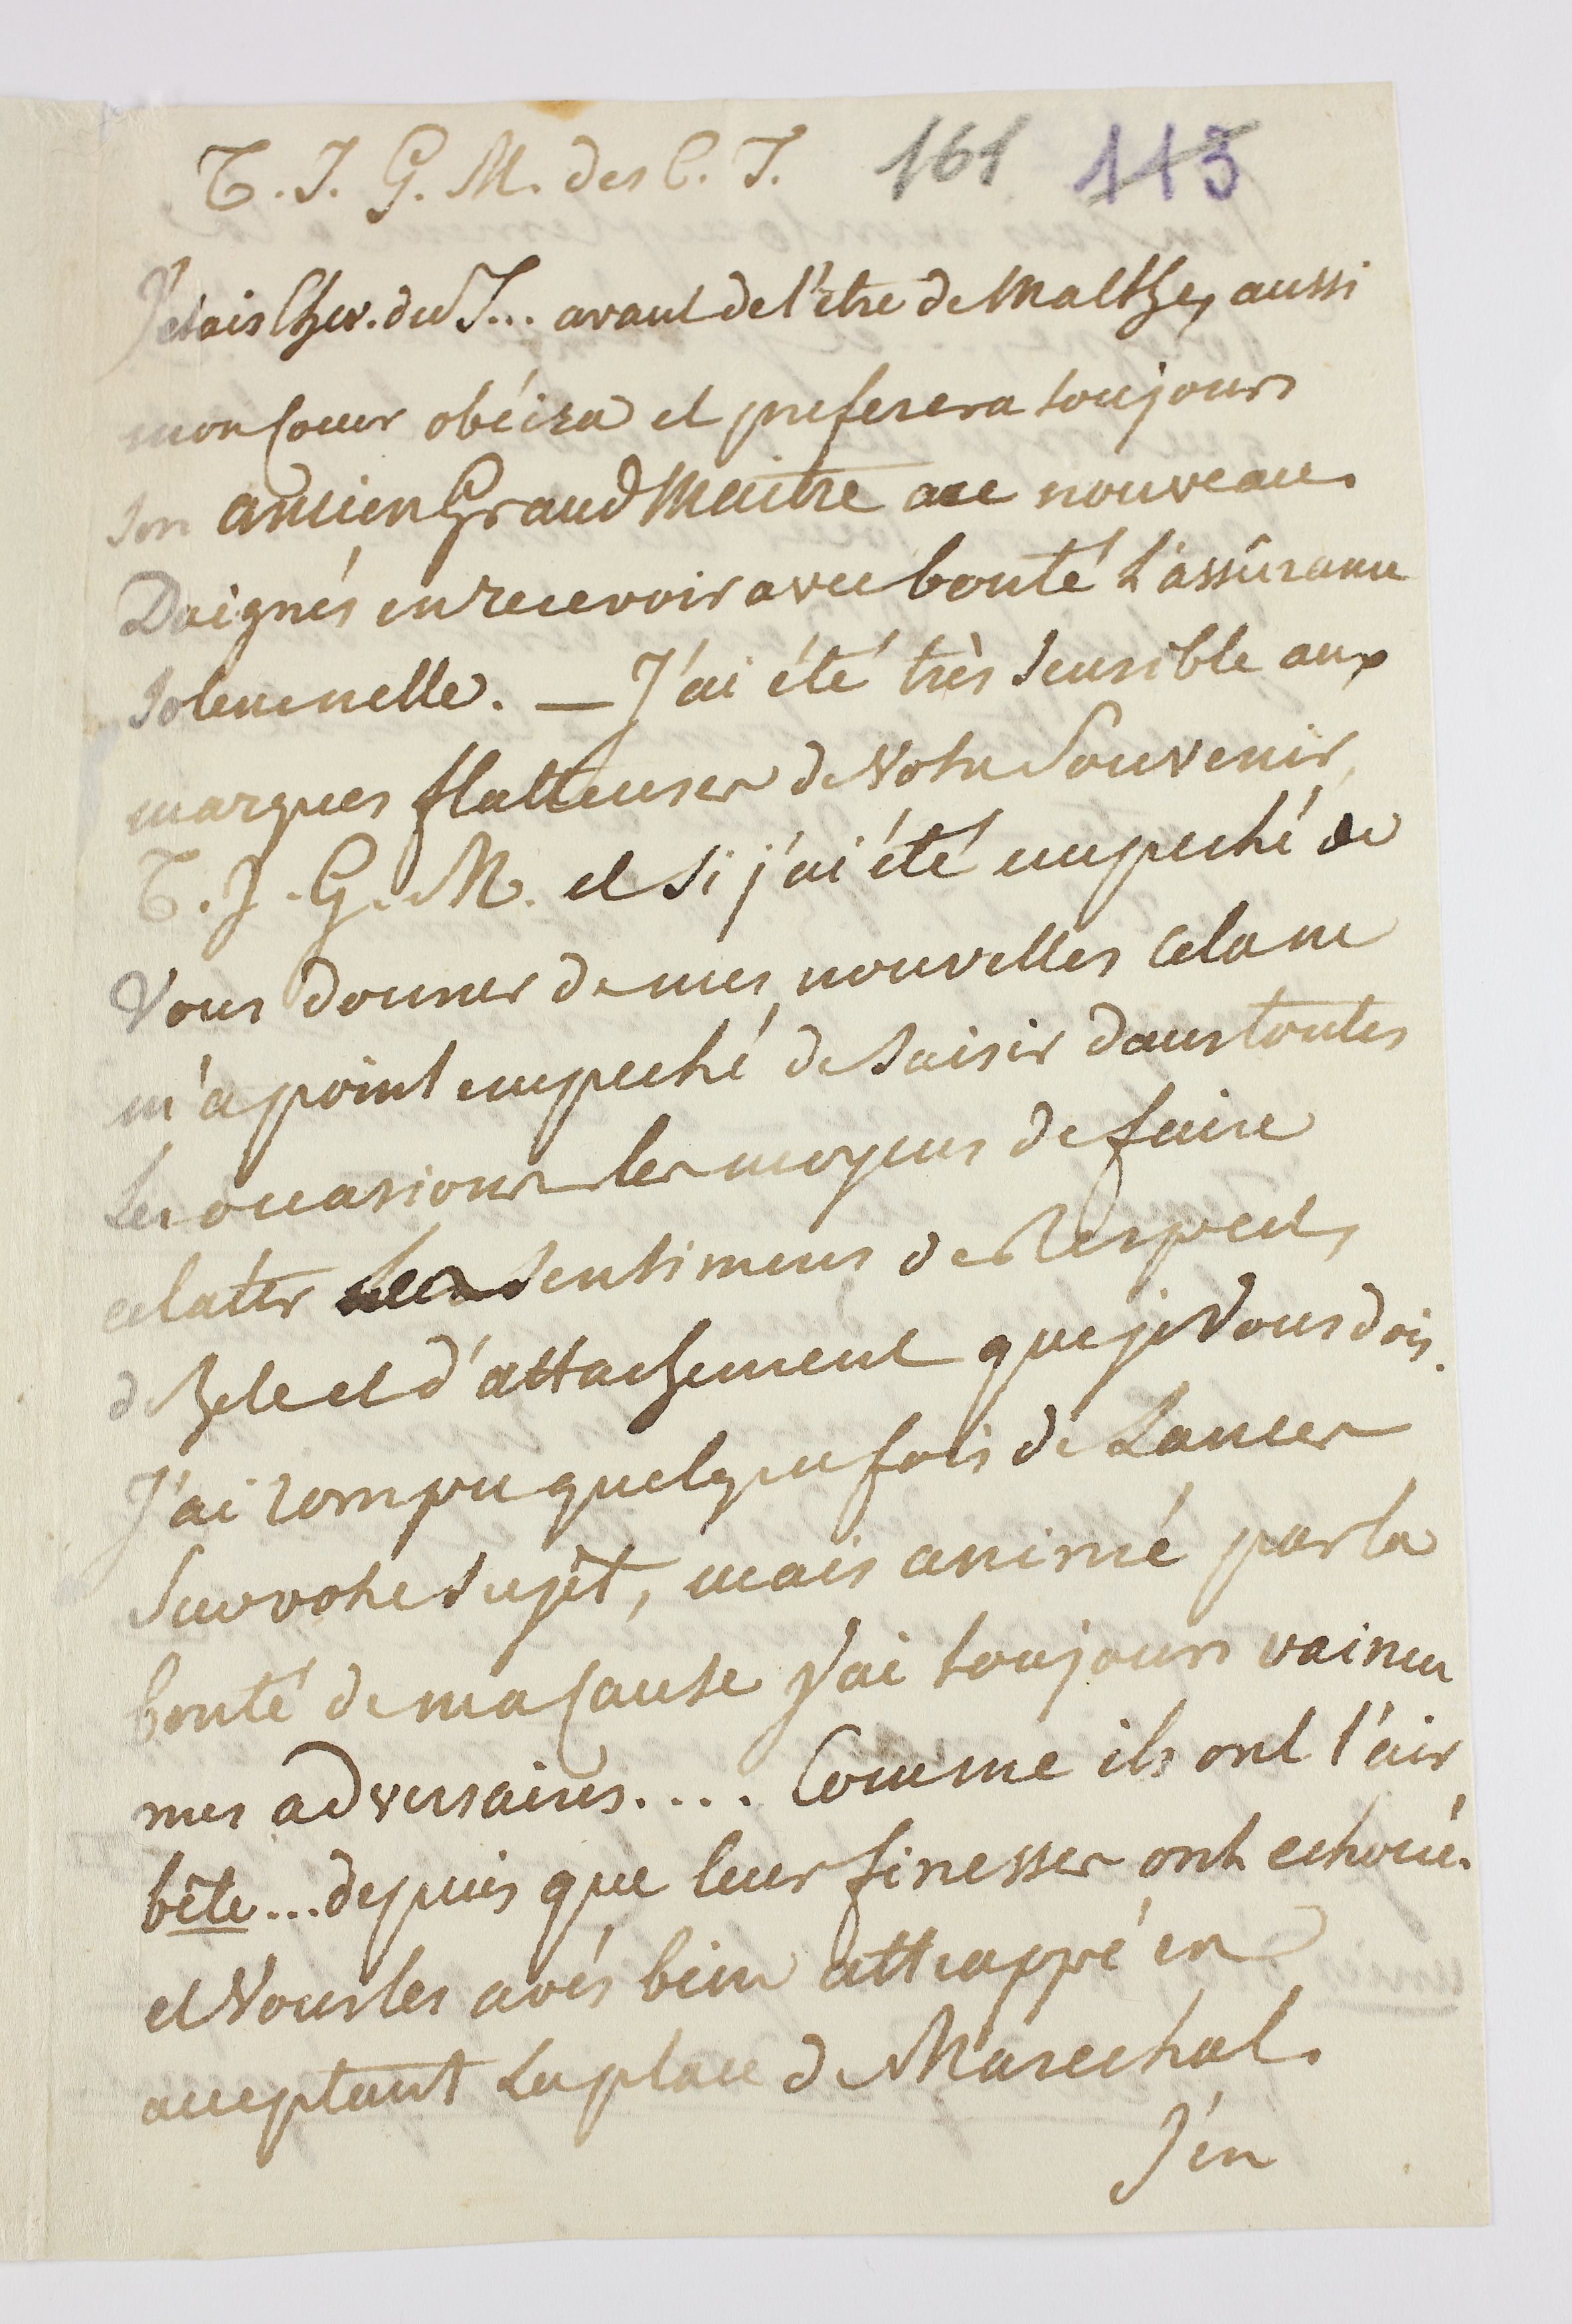 T. I. G. M. des C. T. 161 113
J'etois Chev. du T... avant de l'être de Malthe, aussi
mon Coeur obéira et preferera toujours
son ancien Grand Maitre au nouveau.
Daignés en recevoir avec bonté L'assûrance
Solemnelle. — J'ai été très Sensible aux
marques flatteuses de Votre Souvenir,
T. I. G. M. et si j'ai été empeché de
Vous donner de mes nouvelles cela ne
m'a point empeché de Saisir dans toutes
Les occasions les moyens de faire
eclater les Sentimens de Respect,
de Zele et d'attachement que je Vous dois.
J'ai rompu quelque fois de Lances
Sur votre Sujèt, mais animé par la
bonté de ma Cause j'ai toujours vaincu
mes adversaires.... Comme ils ont l'air
bête... depuis que leur finesses ont echoué.
et Vous les avés bien attrappé en
acceptant La place de Marechal.
J'en